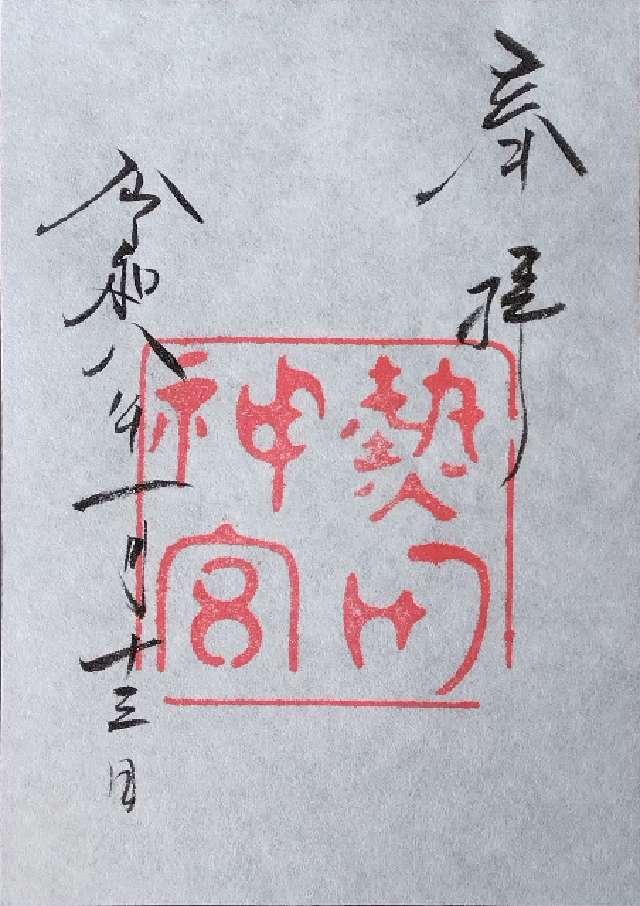 奉拝
熱田
神宮
令和八年一月十三日